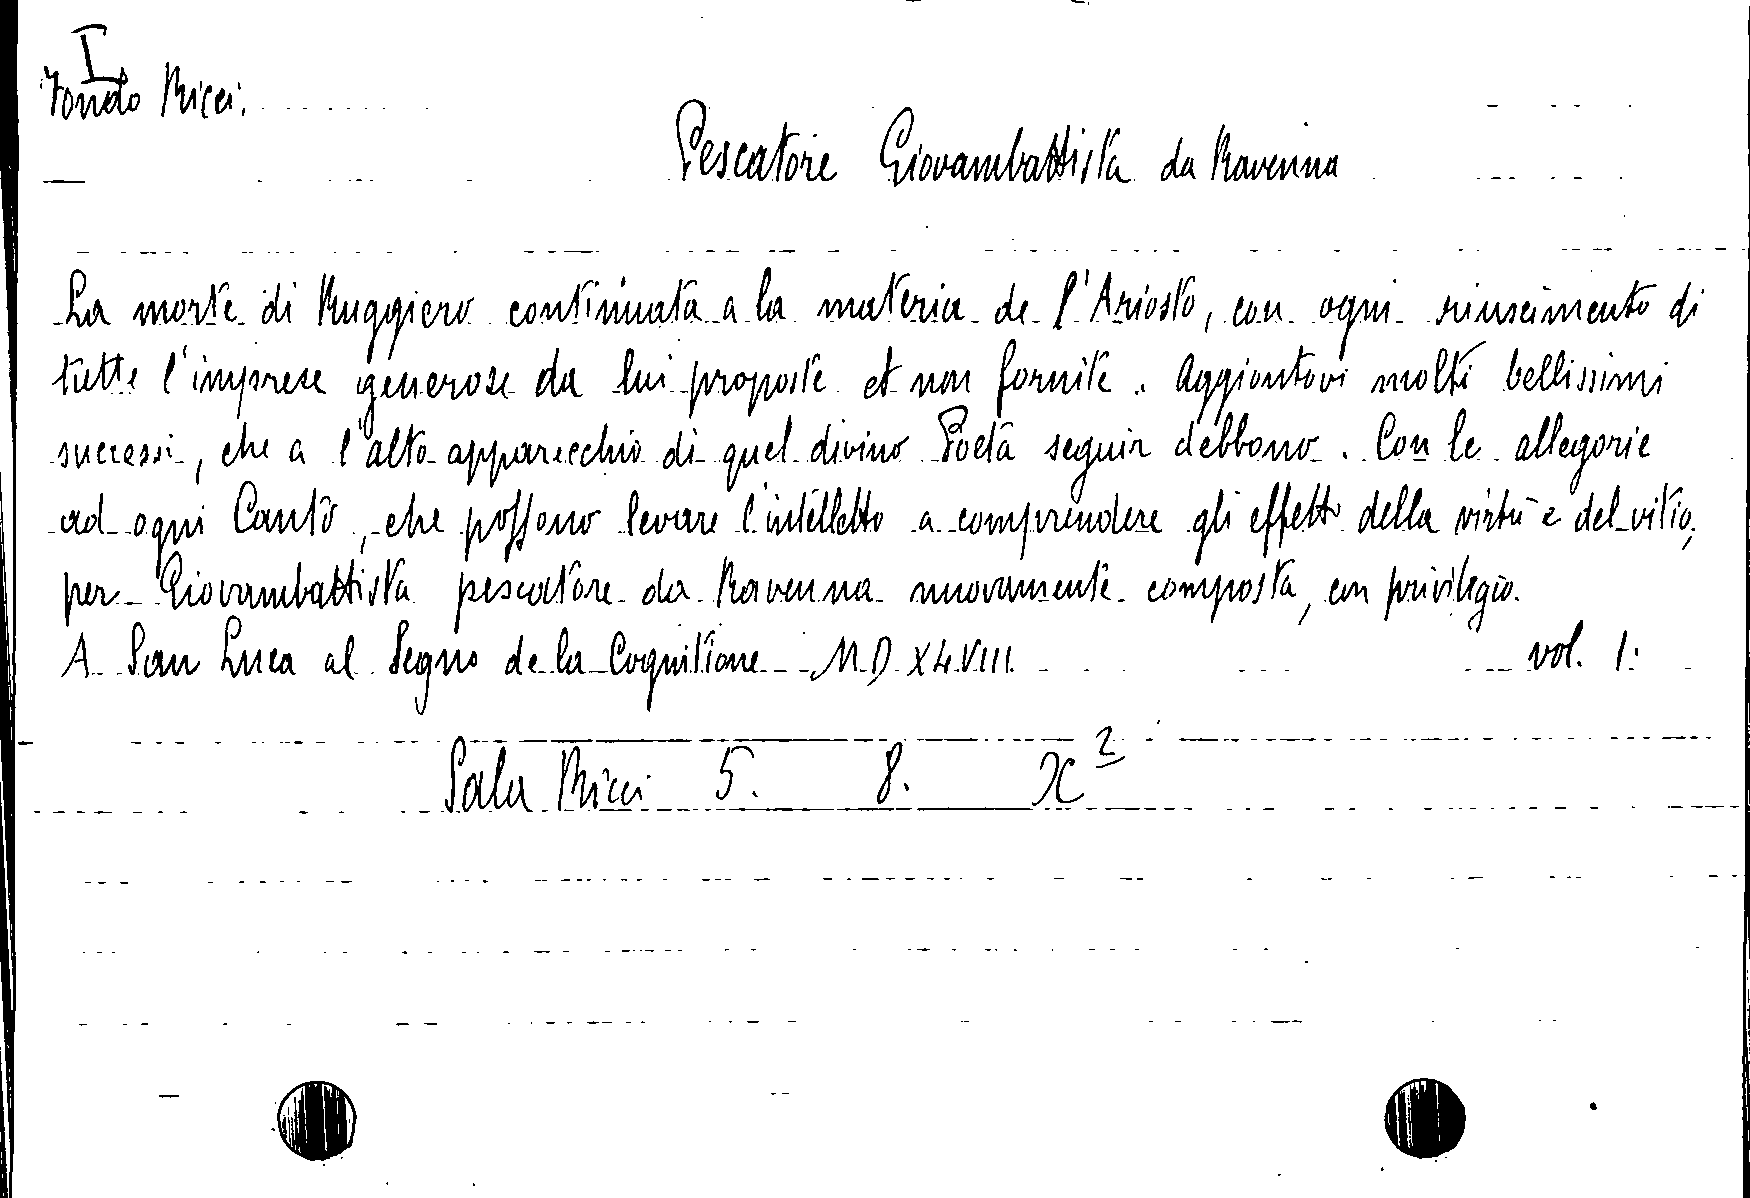 I
Fondo Ricci.
Pescatore Giovambattista da Ravenna
La morte di Ruggiero continuata a la materia de l'Ariosto, con ogni riuscimento di
tutte l'imprese generose da lui proposte et non fornite. Aggiontovi molti bellissimi
successi, che a l'alto apparecchio di quel divino Poeta seguir debbono. Con le allegorie
ad ogni Canto, che possono levare l'intelletto a comprendere gli effetti della virtù e del vitio,
per Giovambattista pescatore da Ravenna nuovamente composta, con privilegio.
A San Luca al Segno de la Cognitione M D XLVIII vol. 1.
Sala Ricci 5. 8. X 2